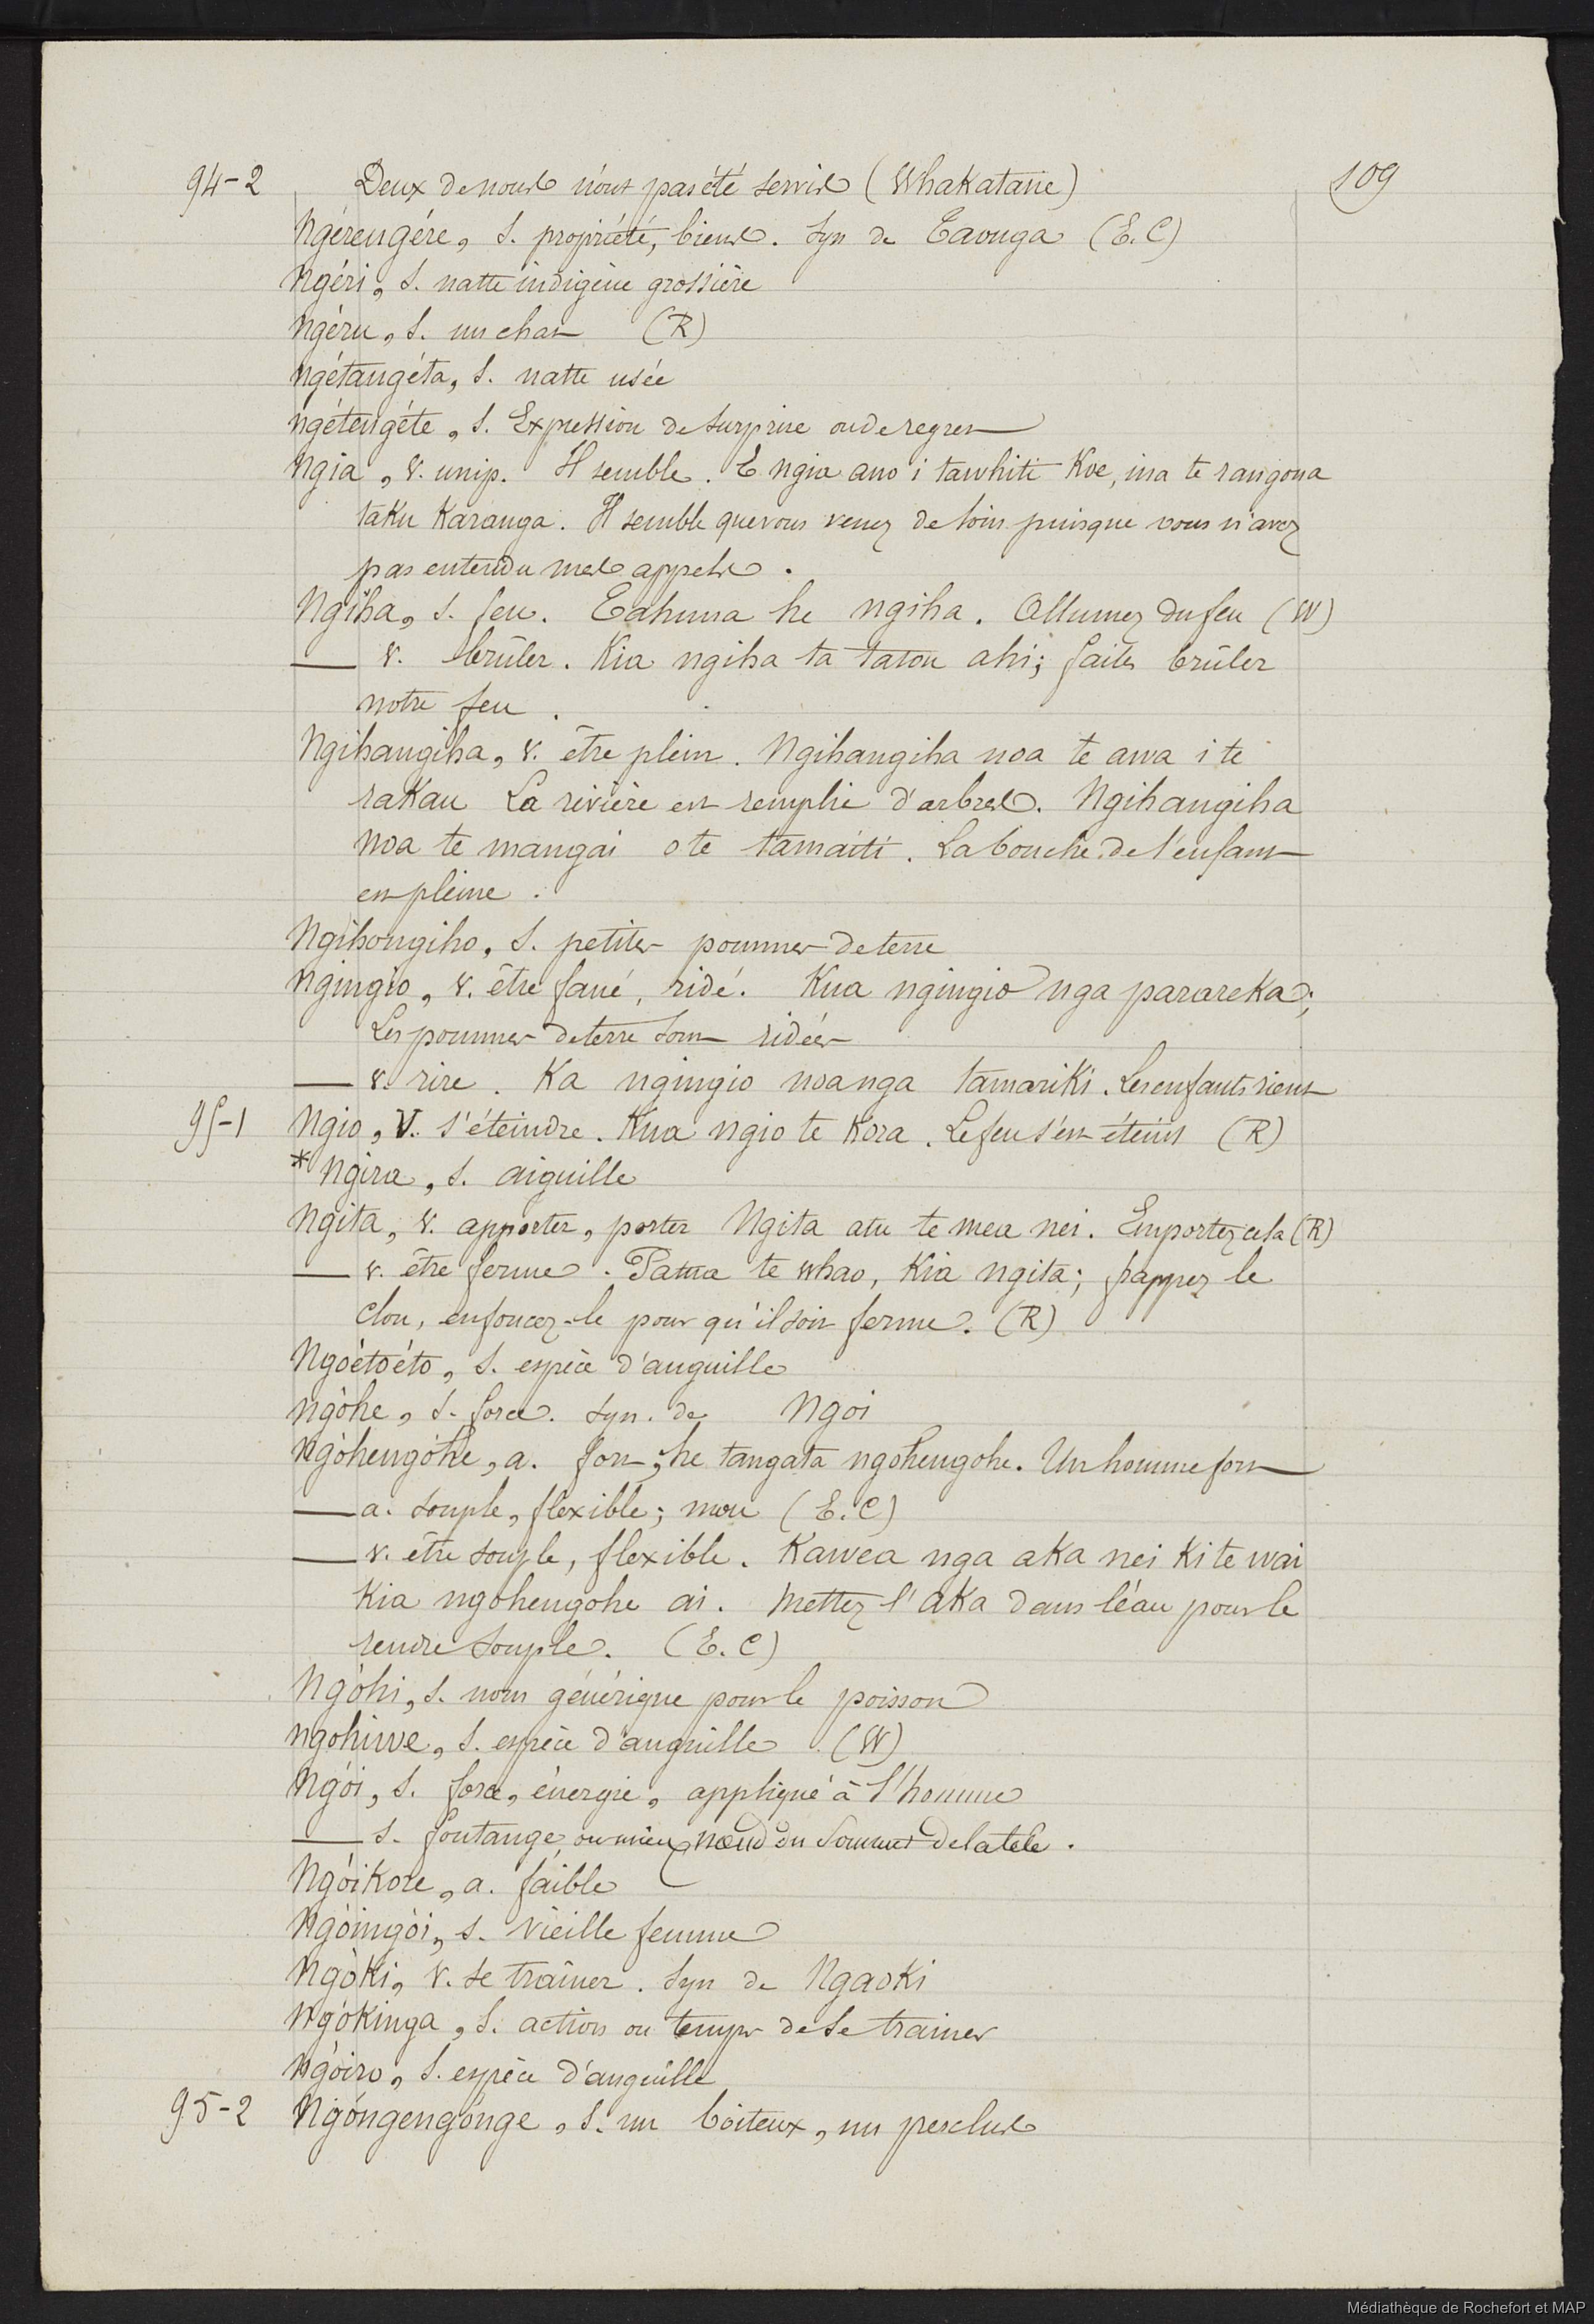 94-2 Deux de nous n'ont pas été servis (Whakatane) 109
Ngérengére, s. propriété, biens. Syn de Taonga (E.C)
Ngéri, s. natte indigène grossière
Ngéru, s. un chat (R)
Ngétangéta, s. natte usée
Ngétengéte, s. Expression de surprise ou de regret
Ngia, v. unip. Il semble. E ngia ano i tawhiti koe, ina te rangona
taku karanga. Il semble que vous venez de loin puisque vous n'avez
pas entendu mes appels.
Ngiha, s. feu. Tahuna he ngiha. Allumez du feu (W)
— v. brûler. Kia ngiha ta tatou ahi; faites brûler
notre feu.
Ngihangiha, v. être plein. Ngihangiha noa te awa i te
rakau La rivière est remplie d'arbres. Ngihangiha
noa te mangai o te tamaiti. La bouche de l'enfant
est pleine.
Ngihongiho, s. petites pommes de terre
Ngingio, v. être fané, ridé. Kua ngingio nga parareka;
Les pommes de terre sont ridées
— v. rire. Ka ngingio noa nga tamariki. Les enfants rient
95-1 Ngio, V. s'éteindre. Kua ngio te kora. Le feu s'est éteint (R)
* Ngira, s. aiguille
Ngita, v. apporter, porter Ngita atu te mea nei. Emportez cela (R)
— v. être ferme. Patua te whao, kia ngita; frappez le
clou, enfoncez-le pour qu'il soit ferme. (R)
Ngoétoéto, s. espèce d'anguille
Ngòhe, s. force. Syn. de Ngoi
Ngòhengòhe, a. fort; he tangata ngohengohe. Un homme fort
— a. souple, flexible; mou (E.C)
— v. être souple, flexible. Kawea nga aka nei ki te wai
kia ngohengohe ai. Mettez l'aka dans l'éau pour le
rendre souple. (E.C)
Ngóhi, s. nom générique pour le poisson
Ngohiwe, s. espèce d'anguille (W)
Ngói, s. force, énergie, appliqué à l'homme
— s. fontange, ou mieux nœud du sommet de la tête.
Ngóikore, a. faible
Ngòingòi, s. vieille femme
Ngòki, v. se traîner. Syn de Ngaoki
Ngòkinga, s. action ou temps de se trainer
Ngòiro, s. espèce d'anguille
95-2 Ngóngengónge, s. un boiteux, un perclus
Médiathèque de Rochefort et MAP